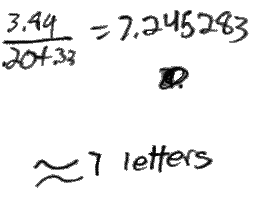 3.84
.20+.33
=7.245283
≈7 letters